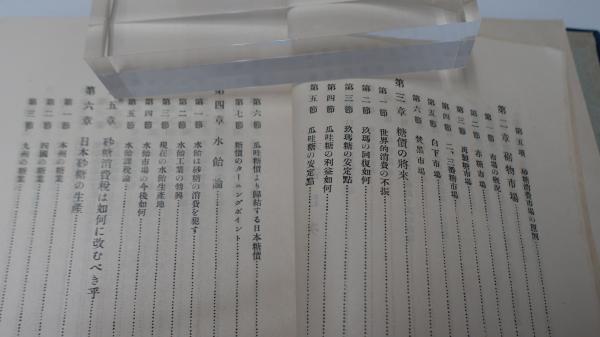 第五項 砂糖消費市場の範圍
第二章 砌物市場
第一節 市場の槪況
第二節 赤糖市場
第三節 再製糖市場
第四節 二、三番糖市場
第五節 白下市場
第六節 焚黑市場
第三章 糖價の將來
第一節 世界的消費の不振
第二節 玖瑪の囘復如何
第三節 玖瑪糖の安定點
第四節 瓜哇糖の利益如何
第五節 瓜哇糖の安定點
第六節 瓜哇糖價より歸結する日本糖價
第七節 糖價のターニングポイント
第四章 水飴論
第一節 水飴は砂糖の消費を犯す
第二節 水飴工業の勃興
第三節 現在の水飴生產地
第四節 水飴市場の今後如何
第五節 水飴課稅論
第五章 砂糖消費稅は如何に改むべき乎
第六章 日本砂糖の生產
第一節 本州の糖業
第二節 四國の糖業
第三節 九州の糖業